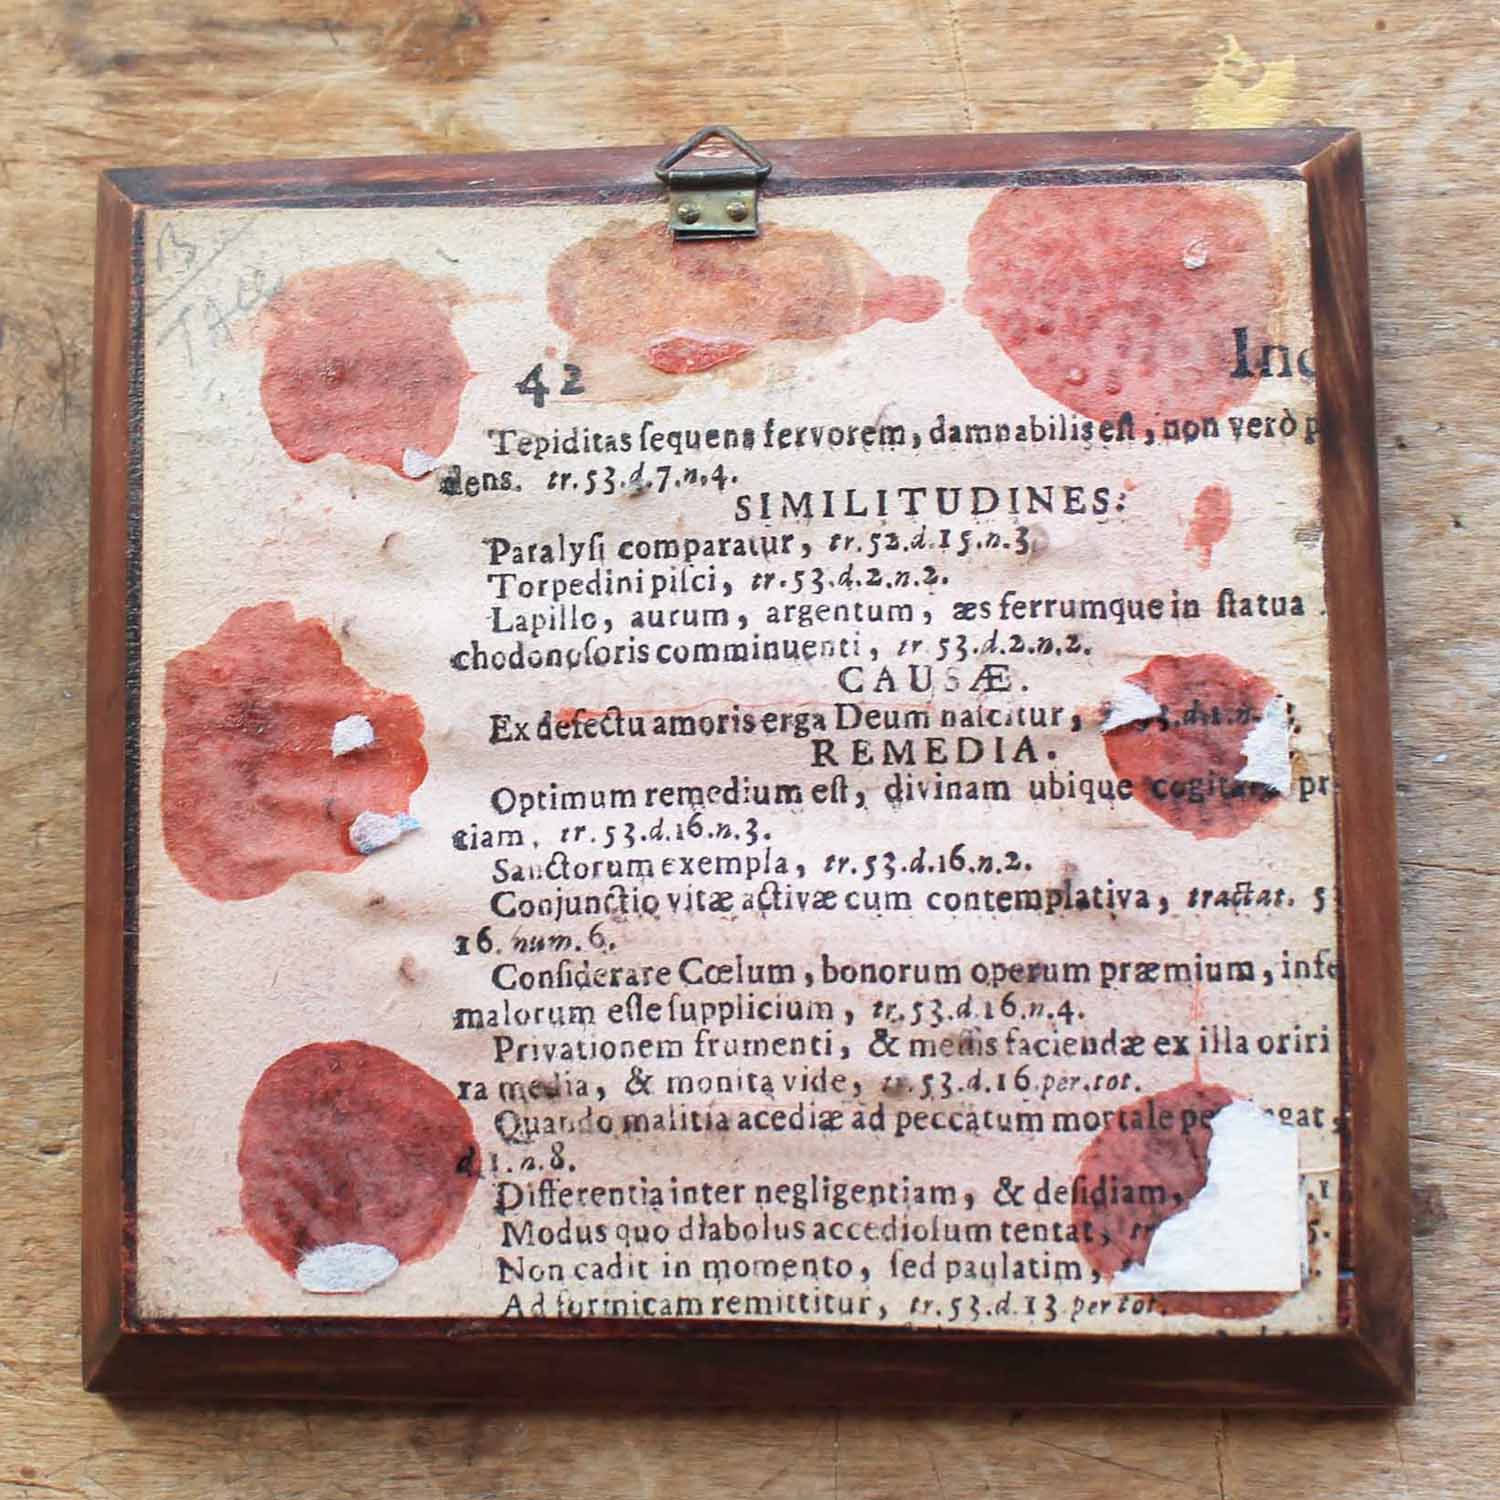 42
Ind
Tepiditas ſequens fervorem, damnabilis eſt, non verò p
dens. tr.53.d.7.n.4.
SIMILITUDINES.
Paralyſi comparatur, tr.52.d.15.n.3.
Torpedini piſci, tr.53.d.2.n.2.
Lapillo, aurum, argentum, æs ferrumque in ſtatua
chodonoſoris comminuenti, tr 53.d.2.n.2.
CAUSÆ.
Ex defectu amoris erga Deum naſcitur, 53.d.1.n.
REMEDIA.
Optimum remedium eſt, divinam ubique cogitare pr
tiam. tr.53.d.16.n.3.
Sanctorum exempla, tr.53.d.16.n.2.
Conjunctio vitæ activæ cum contemplativa, tractat. 5
16. num.6.
Conſiderare Cœlum, bonorum operum præmium, infe
malorum eſſe ſupplicium, tr.53.d.16.n.4.
Privationem frumenti, & meſſis faciendæ ex illa oriri
ra media, & monita vide, tr.53.d.16.per.tot.
Quando malitia acediæ ad peccatum mortale gat,
d.1.n.8.
Differentia inter negligentiam, & deſidiam,
Modus quo diabolus accedioſum tentat, tr
Non cadit in momento, ſed paulatim,
Ad formicam remittitur, tr.53.d.13.per tot.